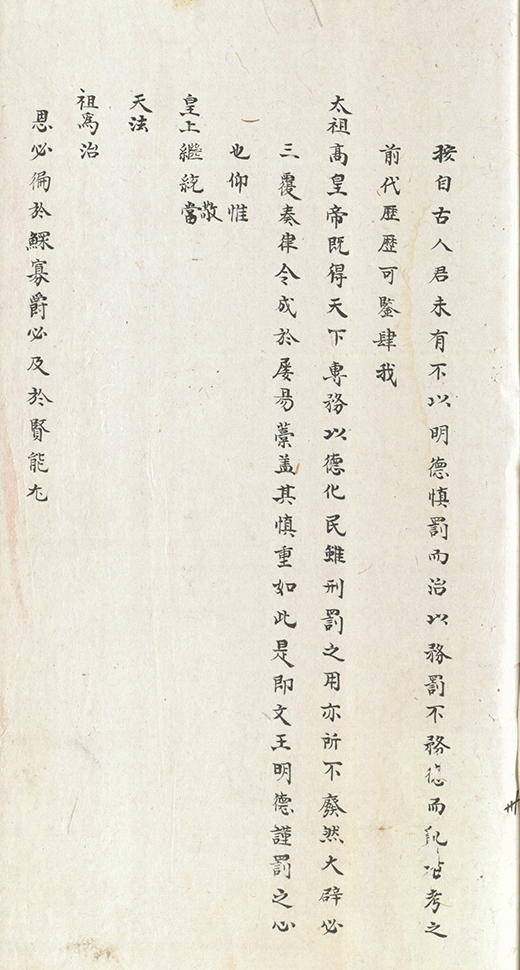 按自古人君未有不以明德慎罰而治以務罰不務德而亂者考之
前代歷歷可鑒肆我
太祖高皇帝既得天下專務以德化民雖刑罰之用亦所不廢然大辟必
三覆奏律令成於屢易藁蓋其慎重如此是即文王明德謹罰之心
也仰惟
皇上繼統當敬
天法
祖爲治
恩必徧於鰥寡爵必及於賢能尤